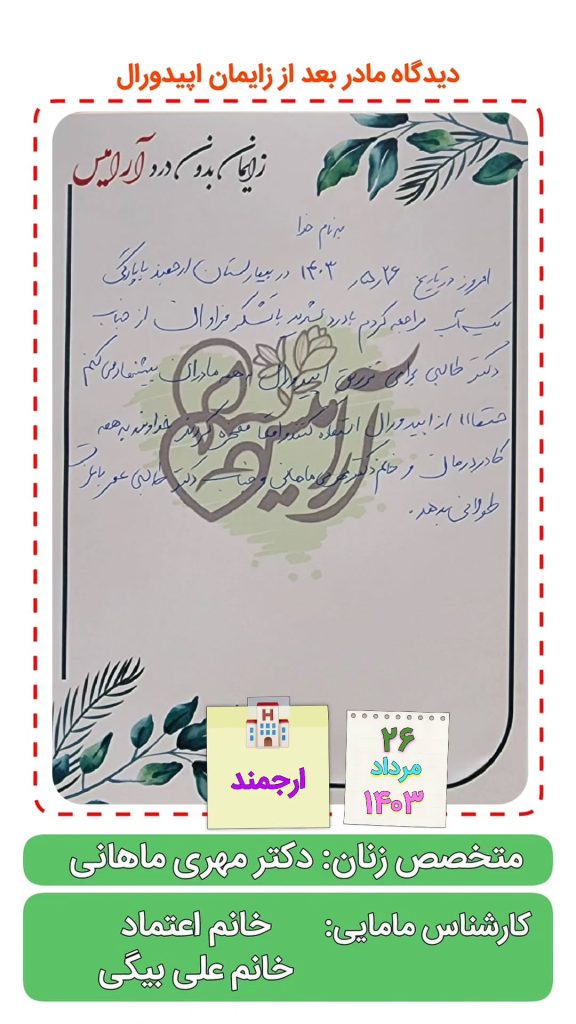 دیدگاه مادر بعد از زایمان اپیدورال
زایمان بدون درد آرامیس
به نام خدا
امروز در تاریخ ۲۶ر۵ر ۱۴۰۳ در بیمارستان ارجمند با پارگی
کیسه آب مراجعه کردم با درد شدید با تشکر فراوان از جناب
دکتر طالبی برای تزریق اپیدورال به همه مادران پیشنهاد می کنم
حتما ااا از اپیدورال استفاده کنند واقعا معجزه کردند خداوند به همه
کادر درمان و خانم دکتر مهری ماهانی و جناب دکتر طالبی عمر با عزت
طولانی بدهد.
آرامیس
H
ارجمند
۲۶
مرداد
۱۴۰۳
متخصص زنان: دکتر مهری ماهانی
کارشناس مامایی: خانم اعتماد
خانم علی بیگی